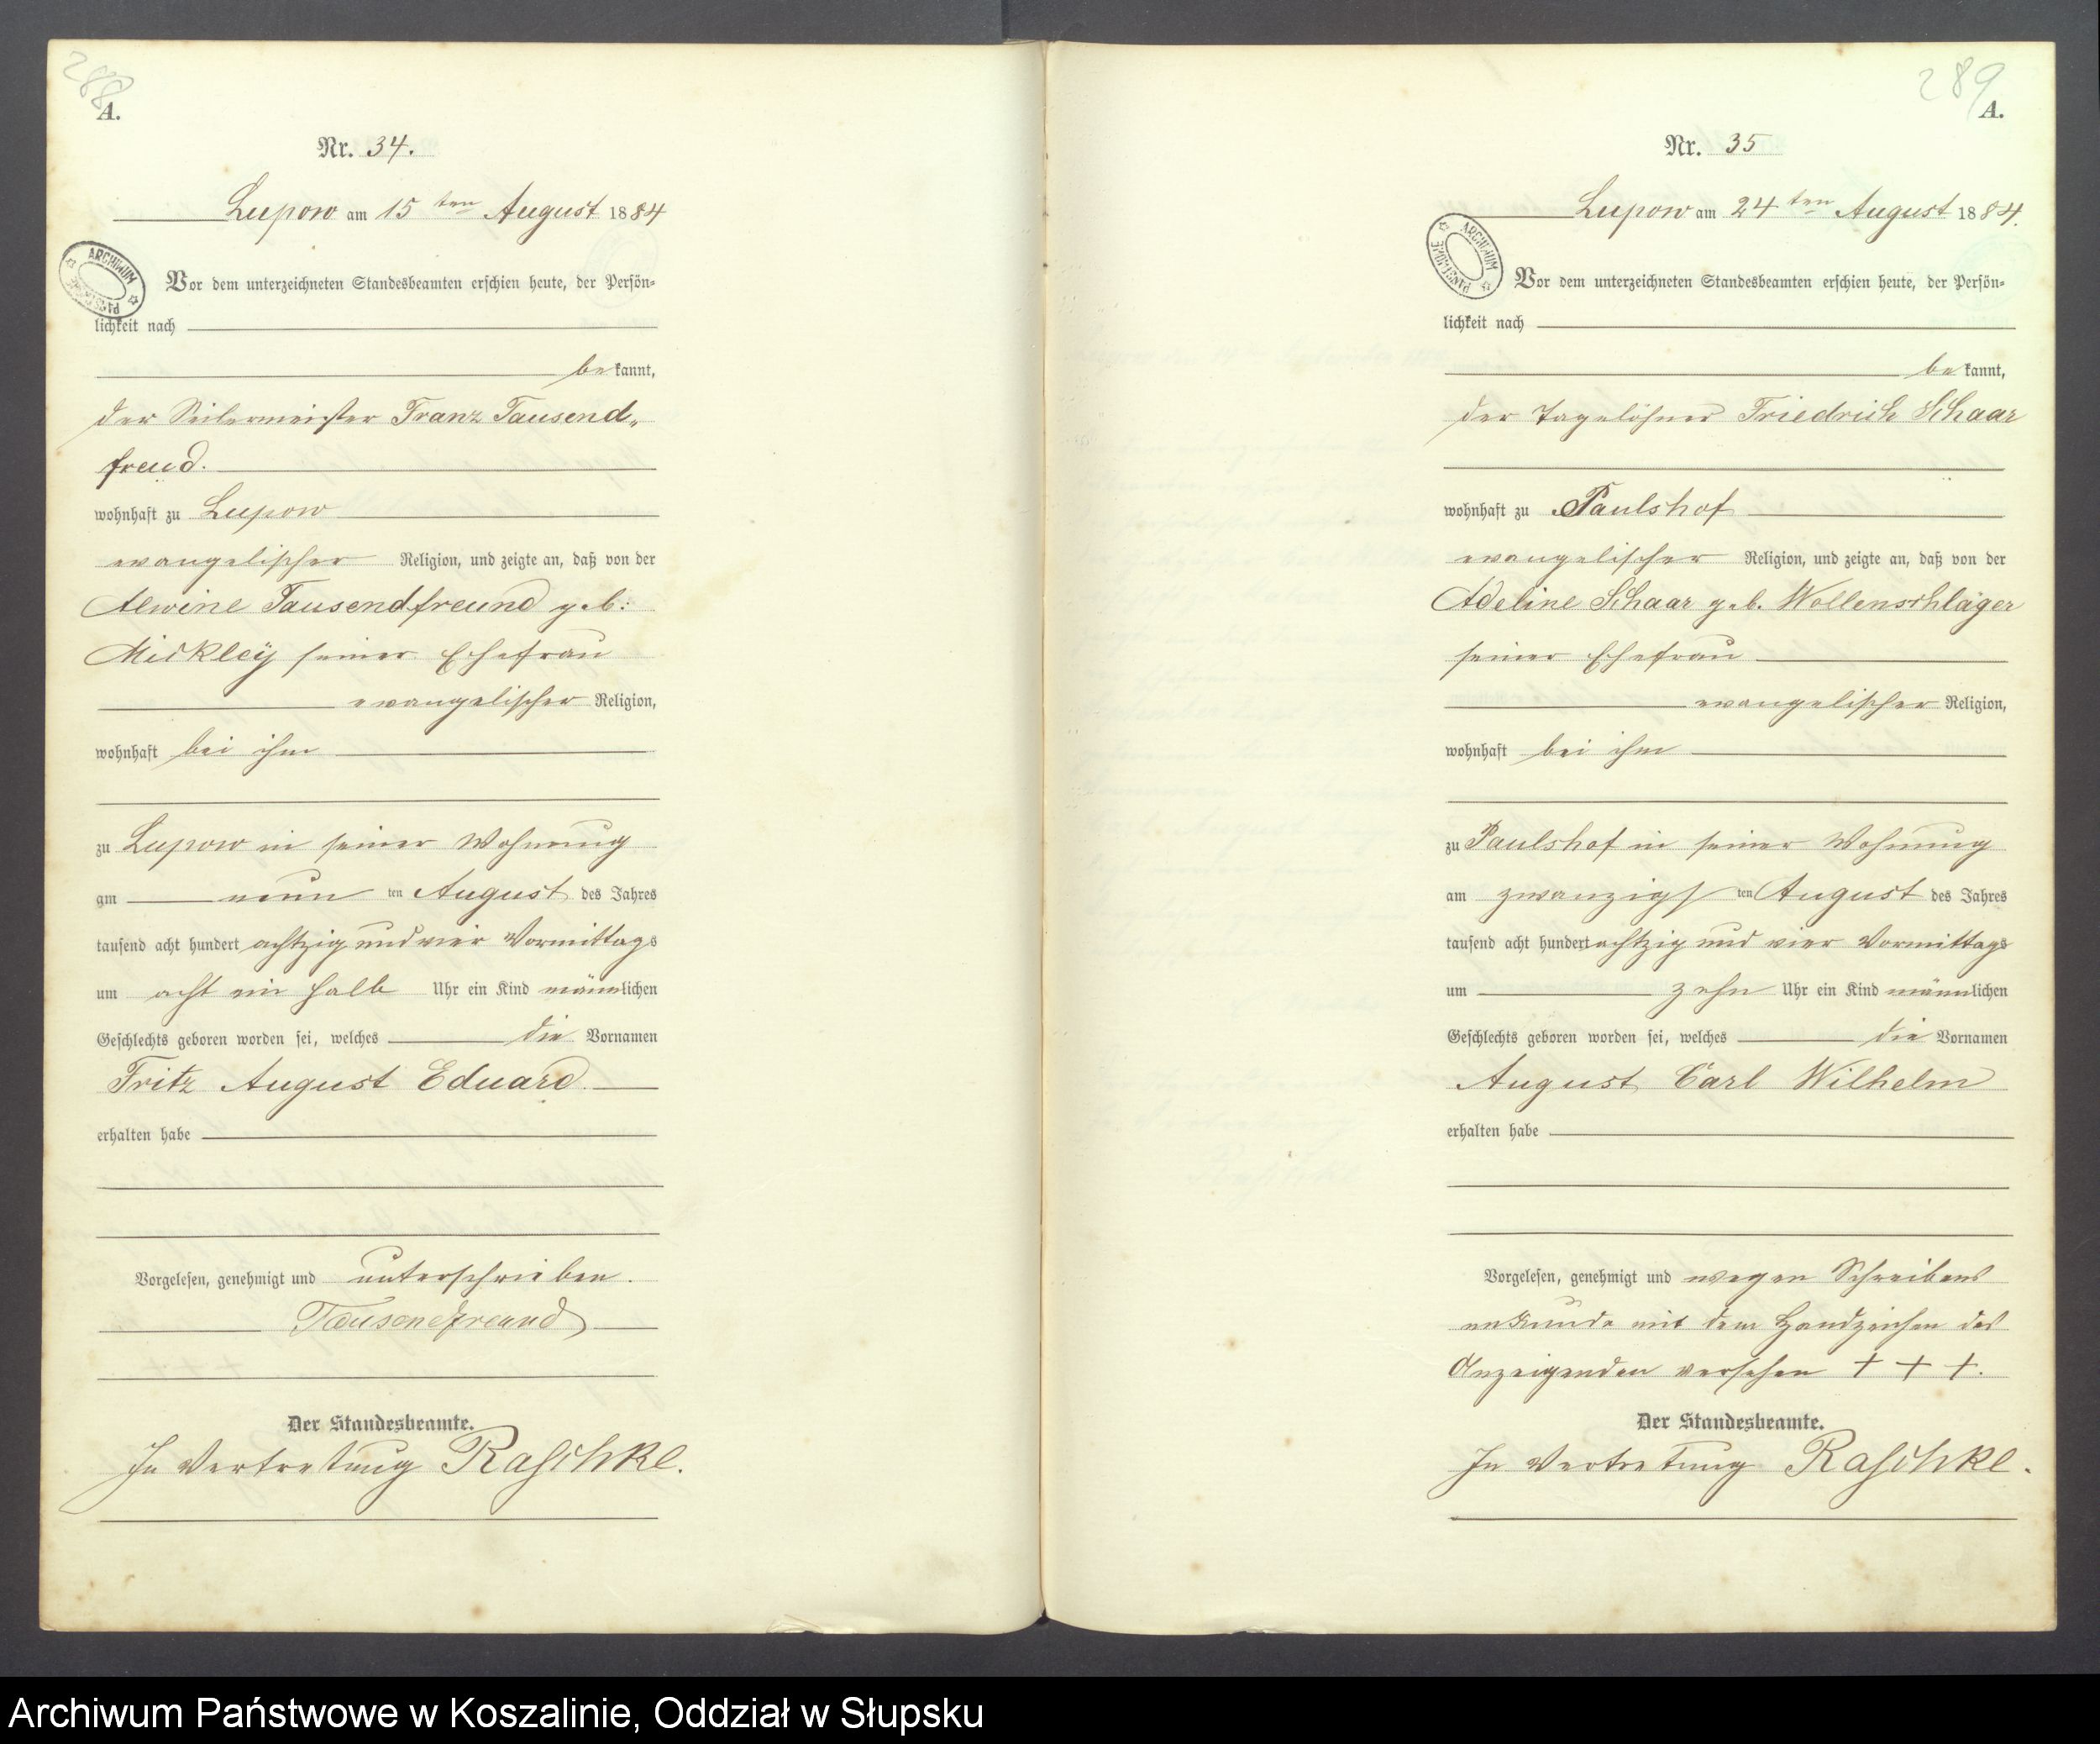 288
A.
Nr. 34.
Lupow am 15 ten August 1884
ARCHIWUM PAŃSTWOWE
Vor dem unterzeichneten Standesbeamten erschien heute, der Persön=
lichkeit nach
bekannt,
der Seilermeister Franz Tausend„
freud.
wohnhaft zu Lupow
evangelischer Religion, und zeigte an, daß von der
Alwine Tausendfreund geb:
Mickley seiner Ehefrau
evangelischer Religion,
wohnhaft bei ihm
zu Lupow in seiner Wohnung
am neun ten August des Jahres
tausend acht hundert achtzig und vier Vormittags
um acht ein halb Uhr ein Kind männlichen
Geschlechts geboren worden sei, welches die Vornamen
Fritz August Eduard.
erhalten habe
Vorgelesen, genehmigt und unterschrieben.
Tausendfreund
Der Standesbeamte.
In Vertretung Raschke.
289
A.
Nr. 35
Lupow am 24 ten August 1884.
ARCHIWUM PAŃSTWOWE
Vor dem unterzeichneten Standesbeamten erschien heute, der Persön=
lichkeit nach
bekannt,
der Tagelöhner Friedrich Schaar
wohnhaft zu Paulshof
evangelischer Religion, und zeigte an, daß von der
Adeline Schaar geb. Wollenschläger
seiner Ehefrau
evangelischer Religion,
wohnhaft bei ihm
zu Paulshof in seiner Wohnung
am zwanzigs ten August des Jahres
tausend acht hundert achtzig und vier Vormittags
um zehn Uhr ein Kind männlichen
Geschlechts geboren worden sei, welches die Vornamen
August Carl Wilhelm
erhalten habe
Vorgelesen, genehmigt und wegen Schreibens
unkunde mit dem Handzeichen des
Anzeigenden versehen + + +.
Der Standesbeamte.
In Vertretung Raschke.
Archiwum Państwowe w Koszalinie, Oddział w Słupsku